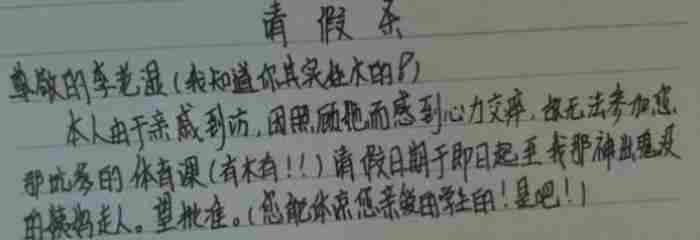 请假条
尊敬的李老湿（我知道你其实姓木的！）
本人由于亲戚到访，因照顾她而感到心力交瘁，故无法参加您
那坑爹的体育课（有木有！！）请假日期于即日起至我那神出鬼没
的姨妈走人。望批准。（您能体谅您亲爱的学生的！是吧！）